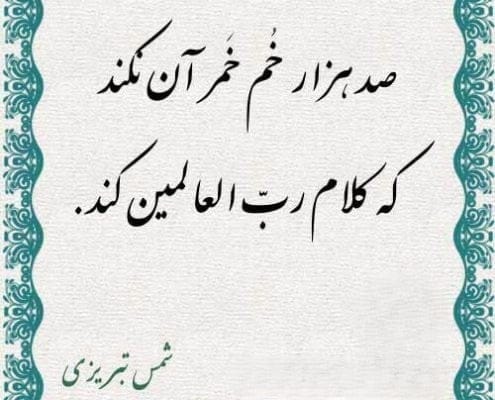 صد هزار خُم خَمر آن نکند
که کلام ربّ العالمین کند.
شمس تبریزی